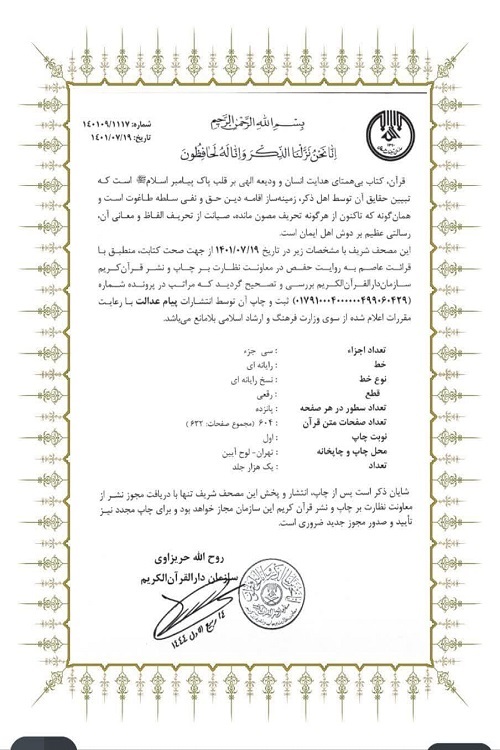 بسم الله الرحمن الرحیم
شماره: ۱۴۰۱۰۹/۱۱۱۷
تاریخ: ۱۴۰۱/۰۷/۱۹
اِنّا نَحنُ نَزَّلنَا الذِّکرَ وَ اِنّا لَهُ لَحافِظُونَ
قرآن، کتاب بی‌همتای هدایت انسان و ودیعه الهی بر قلب پاک پیامبر اسلامﷺ است که
تبیین حقایق آن توسط اهل ذکر، زمینه‌ساز اقامه دین حق و نفی سلطه طاغوت است و
همان‌گونه که تاکنون از هرگونه تحریف مصون مانده، صیانت از تحریف الفاظ و معانی آن،
رسالتی عظیم بر دوش اهل ایمان است.
این مصحف شریف با مشخصات زیر در تاریخ ۱۴۰۱/۰۷/۱۹ از جهت صحت کتابت، منطبق با
قرائت عاصم به روایت حفص در معاونت نظارت بر چاپ و نشر قرآن‌کریم
سازمان‌دارالقرآن‌الکریم بررسی و تصحیح گردید که مراتب در پرونده شماره
(۰۱۷۹۱۰۰۰۴۰۰۰۰۰۰۴۹۹۰۶۰۴۲۹) ثبت و چاپ آن توسط انتشارات پیام عدالت با رعایت
مقررات اعلام شده از سوی وزارت فرهنگ و ارشاد اسلامی بلامانع می‌باشد.
تعداد اجزاء : سی جزء
خط : رایانه ای
نوع خط : نسخ رایانه ای
قطع : رقعی
تعداد سطور در هر صفحه : پانزده
تعداد صفحات متن قرآن : ۶۰۴ (مجموع صفحات: ۶۳۲)
نوبت چاپ : اول
محل چاپ و چاپخانه : تهران- لوح آیین
تعداد : یک هزار جلد
شایان ذکر است پس از چاپ، انتشار و پخش این مصحف شریف تنها با دریافت مجوز نشر از
معاونت نظارت بر چاپ و نشر قرآن کریم این سازمان مجاز خواهد بود و برای چاپ مجدد نیز
تأیید و صدور مجوز جدید ضروری است.
روح الله حریزاوی
سازمان دارالقرآن‌الکریم
۱۴ ربیع الاول ۱۴۴۴